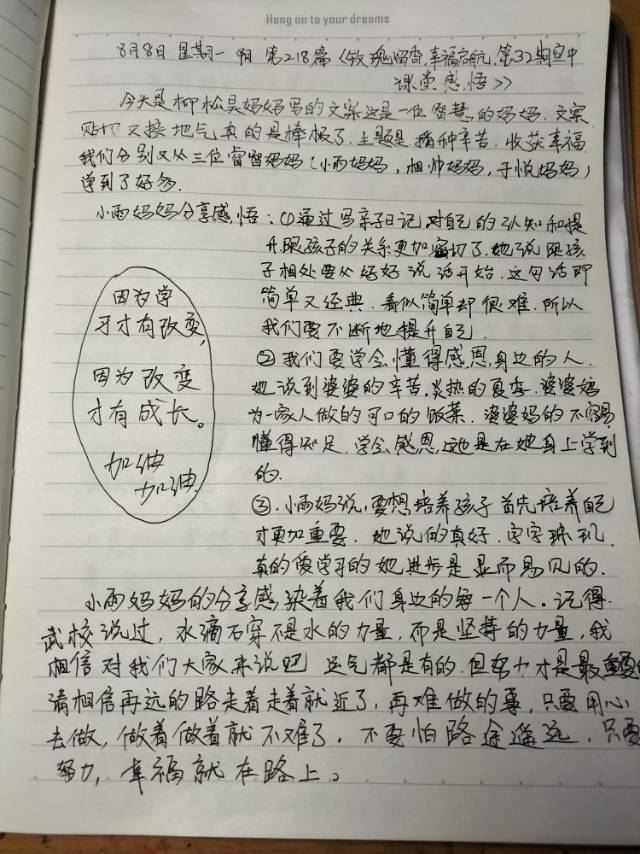 Hang on to your dreams
8月8日 星期一 阴 第218篇《玫瑰留香幸福启航.第32期空中
课堂感悟>>
今天是柳松昊妈妈写的文案这是一位智慧的妈妈.文案
贴切又接地气真的是棒极了.主题是播种辛苦.收获幸福
我们分别又从三位睿智妈妈(小雨妈妈,相帅妈妈,子悦妈妈)
学到了好多.
小雨妈妈分享感悟:①通过写亲子日记对自己的认知和提
升跟孩子的关系更加密切了.她说跟孩
子相处要从好好说话开始.这句话即
简单又经典.看似简单却很难.所以
我们要不断地提升自己.
②我们要学会懂得感恩身边的人.
她说到婆婆的辛苦.炎热的夏季.婆婆妈
为一家人做的可口的饭菜.婆婆妈的不容易
懂得知足.学会感恩.这也是在她身上学到
的.
③.小雨妈说,要想培养孩子首先培养自己
才更加重要.她说的真好.字字珠玑.
真的爱学习的她进步是显而易见的.
因为学
习才有改变,
因为改变
才有成长。
加油
加油.
小雨妈妈的分享感染着我们身边的每一个人.记得
武校说过,水滴石穿不是水的力量,而是坚持的力量,我
相信对我们大家来说吧 运气都是有的.但努力才是最重要的
请相信再远的路走着走着就近了,再难做的事,只要用心
去做,做着做着就不难了.不要怕路途遥远.只要
努力,幸福就在路上。